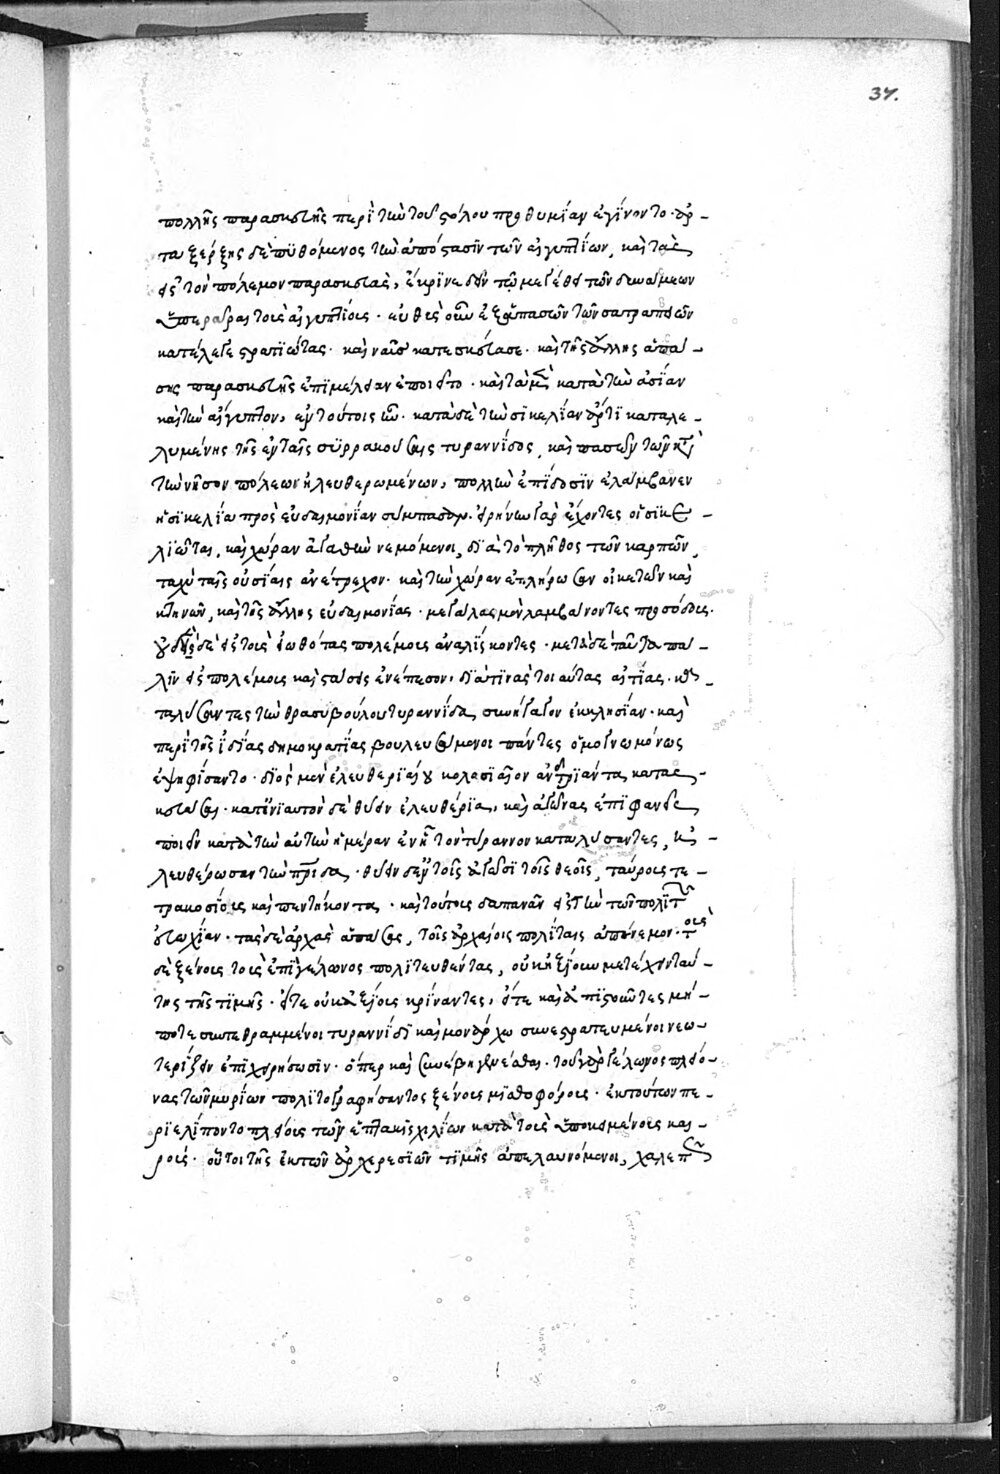 37.
πολλῆς παρασκευῆς περὶ τὴν τοῦ στόλου προθυμίαν ἐγίνοντο. ἀρ-
ταξέρξης δὲ πυθόμενος τὴν ἀπόστασιν τῶν αἰγυπτίων, καὶ τὰς
εἰς τὸν πόλεμον παρασκευὰς, ἔκρινε δεῖν τῷ μεγέθει τῶν δυνάμεων
ὑπερᾶραι τοὺς αἰγυπτίους. εὐθὺς οὖν ἐξ ἁπασῶν τῶν σατραπειῶν
κατέλεγε στρατιώτας. καὶ ναῦς κατεσκεύασε. καὶ τῆς ἄλλης ἁπά-
σης παρασκευῆς ἐπιμέλειαν ἐποιεῖτο. καὶ τὰ μὲν κατὰ τὴν ἀσίαν
καὶ τὴν αἴγυπτον, ἐν τούτοις ἦν. κατὰ δὲ τὴν σικελίαν ἄρτι καταλε-
λυμένης τῆς ἐν ταῖς συρρακούσαις τυραννίδος, καὶ πασῶν τῶν κατὰ
τὴν νῆσον πόλεων ἠλευθερωμένων, πολλὴν ἐπίδοσιν ἐλάμβανεν
ἡ σικελία πρὸς εὐδαιμονίαν σύμπασαν. εἰρήνην γὰρ ἔχοντες οἱ σικε-
λιῶται, καὶ χώραν ἀγαθὴν νεμόμενοι, διὰ τὸ πλῆθος τῶν καρπῶν,
ταχὺ ταῖς οὐσίαις ἀνέτρεχον. καὶ τὴν χώραν ἐπλήρωσαν οἰκετῶν καὶ
κτηνῶν, καὶ τῆς ἄλλης εὐδαιμονίας. μεγάλας μὲν λαμβάνοντες προσόδους.
οὐδὲν δὲ εἰς τοὺς εἰωθότας πολέμους ἀναλίσκοντες. μετὰ δὲ ταῦτα πά-
λιν εἰς πολέμους καὶ στάσεις ἐνέπεσον, διὰ τινὰς τοιαύτας αἰτίας. κα-
ταλύσαντες τὴν θρασυβούλου τυραννίδα, συνήγαγον ἐκκλησίαν. καὶ
περὶ τῆς ἰδίας δημοκρατίας βουλευσάμενοι πάντες ὁμογνωμόνως
ἐψηφίσαντο. διὸς μὲν ἐλευθερίου κολοσιαῖον ἀνδριάντα κατας-
κευάσαι. κατ' ἐνιαυτὸν δὲ θύειν ἐλευθέρια, καὶ ἀγῶνας ἐπιφανεῖς
ποιεῖν κατὰ τὴν αὐτὴν ἡμέραν ἐν ᾗ τὸν τύραννον καταλύσαντες, ἠ-
λευθέρωσαν τὴν πατρίδα. θύειν δ' ἐν τοῖς ἀγῶσι τοῖς θεοῖς, ταύρους τε-
τρακοσίους καὶ πεντήκοντα. καὶ τούτους δαπανᾶν εἰς τὴν τῶν πολιτῶν
εὐωχίαν. τὰς δὲ ἀρχὰς ἁπάσας, τοῖς ἀρχαίοις πολίταις ἀπένεμον. τοὺς
δὲ ξένους τοὺς ἐπὶ γέλωνος πολιτευθέντας, οὐκ ἠξίουν μετέχειν ταύ-
της τῆς τιμῆς. εἴτε οὐκ ἀξίους κρίναντες, εἴτε καὶ ἀπιστοῦντες μή-
ποτε συντεθραμμένοι τυραννίδι καὶ μονάρχῳ συνεστρατευμένοι νεω-
τερίζειν ἐπιχειρήσωσιν. ὅπερ καὶ συνέβη γενέσθαι. τοῦ γὰρ γέλωνος πλείο-
νας τῶν μυρίων πολιτογραφήσαντος ξένους μισθοφόρους. ἐκ τούτων πε-
ριελίποντο πλείους τῶν ἑπτακισχιλίων κατὰ τοὺς ὑποκειμένους και-
ρούς. οὗτοι τῆς ἐκ τῶν ἀρχαιρεσιῶν τιμῆς ἀπελαυνόμενοι, χαλεπῶς